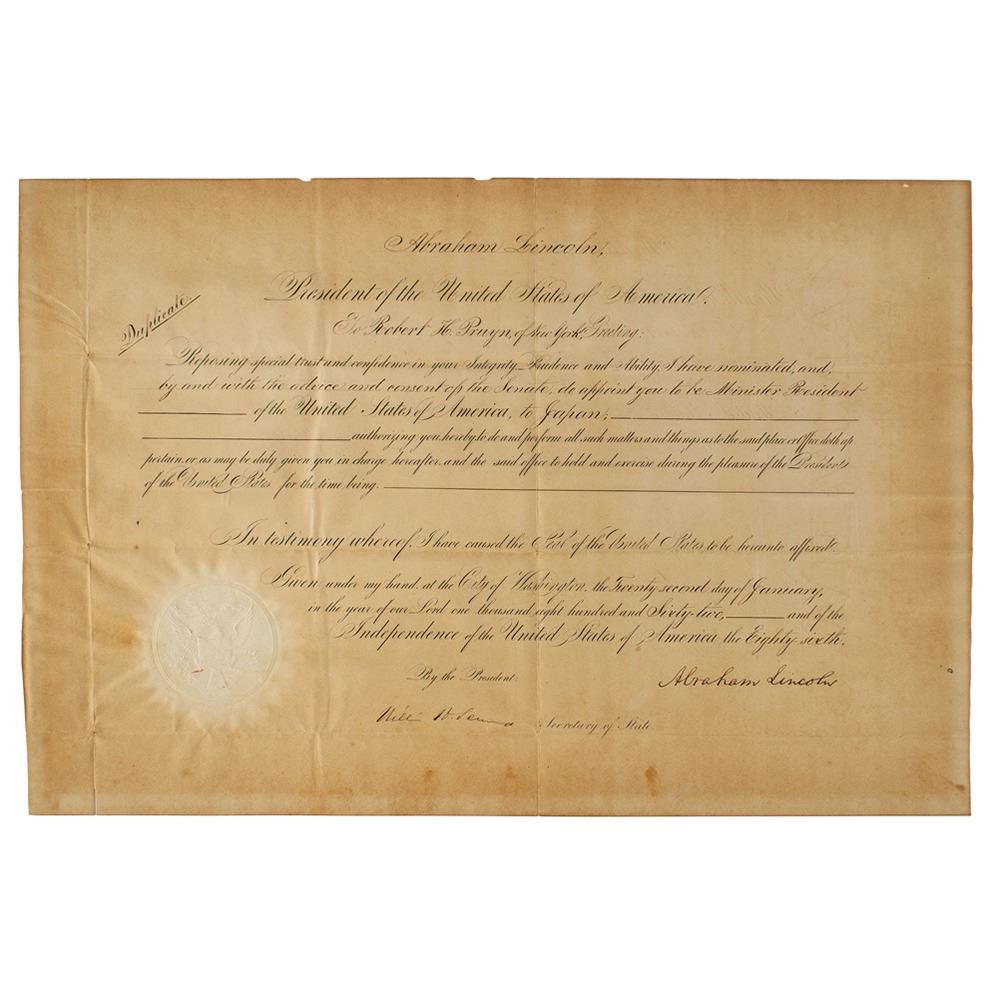 Abraham Lincoln,
President of the United States of America.
Duplicate.
To Robert H. Pruyn, of New York, Greeting:
Reposing special trust and confidence in your Integrity, Prudence and Ability, I have nominated, and,
by and with the advice and consent of the Senate, do appoint you to be Minister Resident
of the United States of America, to Japan;
authorizing you, hereby, to do and perform all such matters and things as to the said place or Office doth ap
pertain, or as may be duly given you in charge hereafter, and the said office to hold and exercise during the pleasure of the President
of the United States for the time being.
In testimony whereof, I have caused the Seal of the United States to be hereunto affixed.
Given under my hand, at the City of Washington, the Twenty second day of January,
in the year of our Lord one thousand eight hundred and Sixty-two, and of the
Independence of the United States of America the Eighty sixth.
By the President: Abraham Lincoln
William H. Seward Secretary of State.